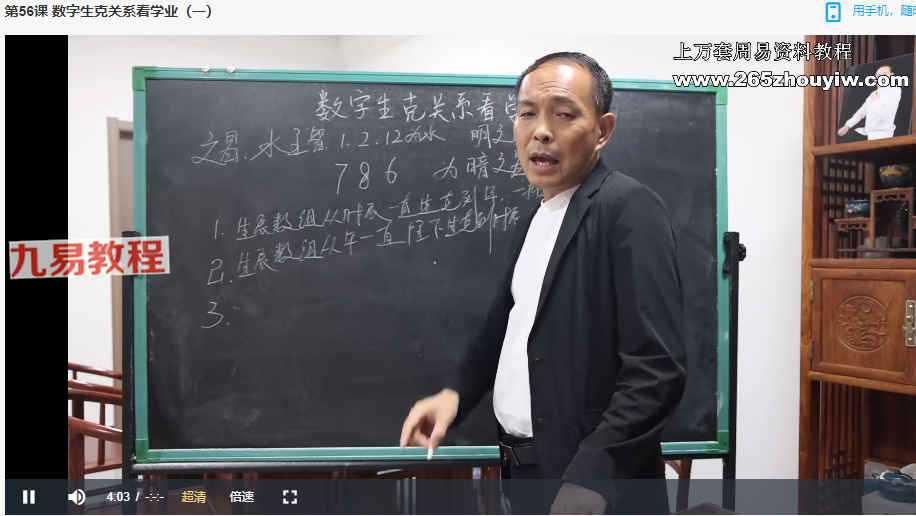 第56课 数字生克关系看学业（一）
用手机，随时
上万套周易资料教程
www.265zhouyiw.com
数字生克关系看学
文昌.水主智 1.2.12为水 明文
7 8 6 为暗文昌
1.生辰数组从时辰一直连克到年,一种
2.生辰数组从年一直往下连克到时辰
3.
九易教程
4:03 / -:-:- 超清 倍速